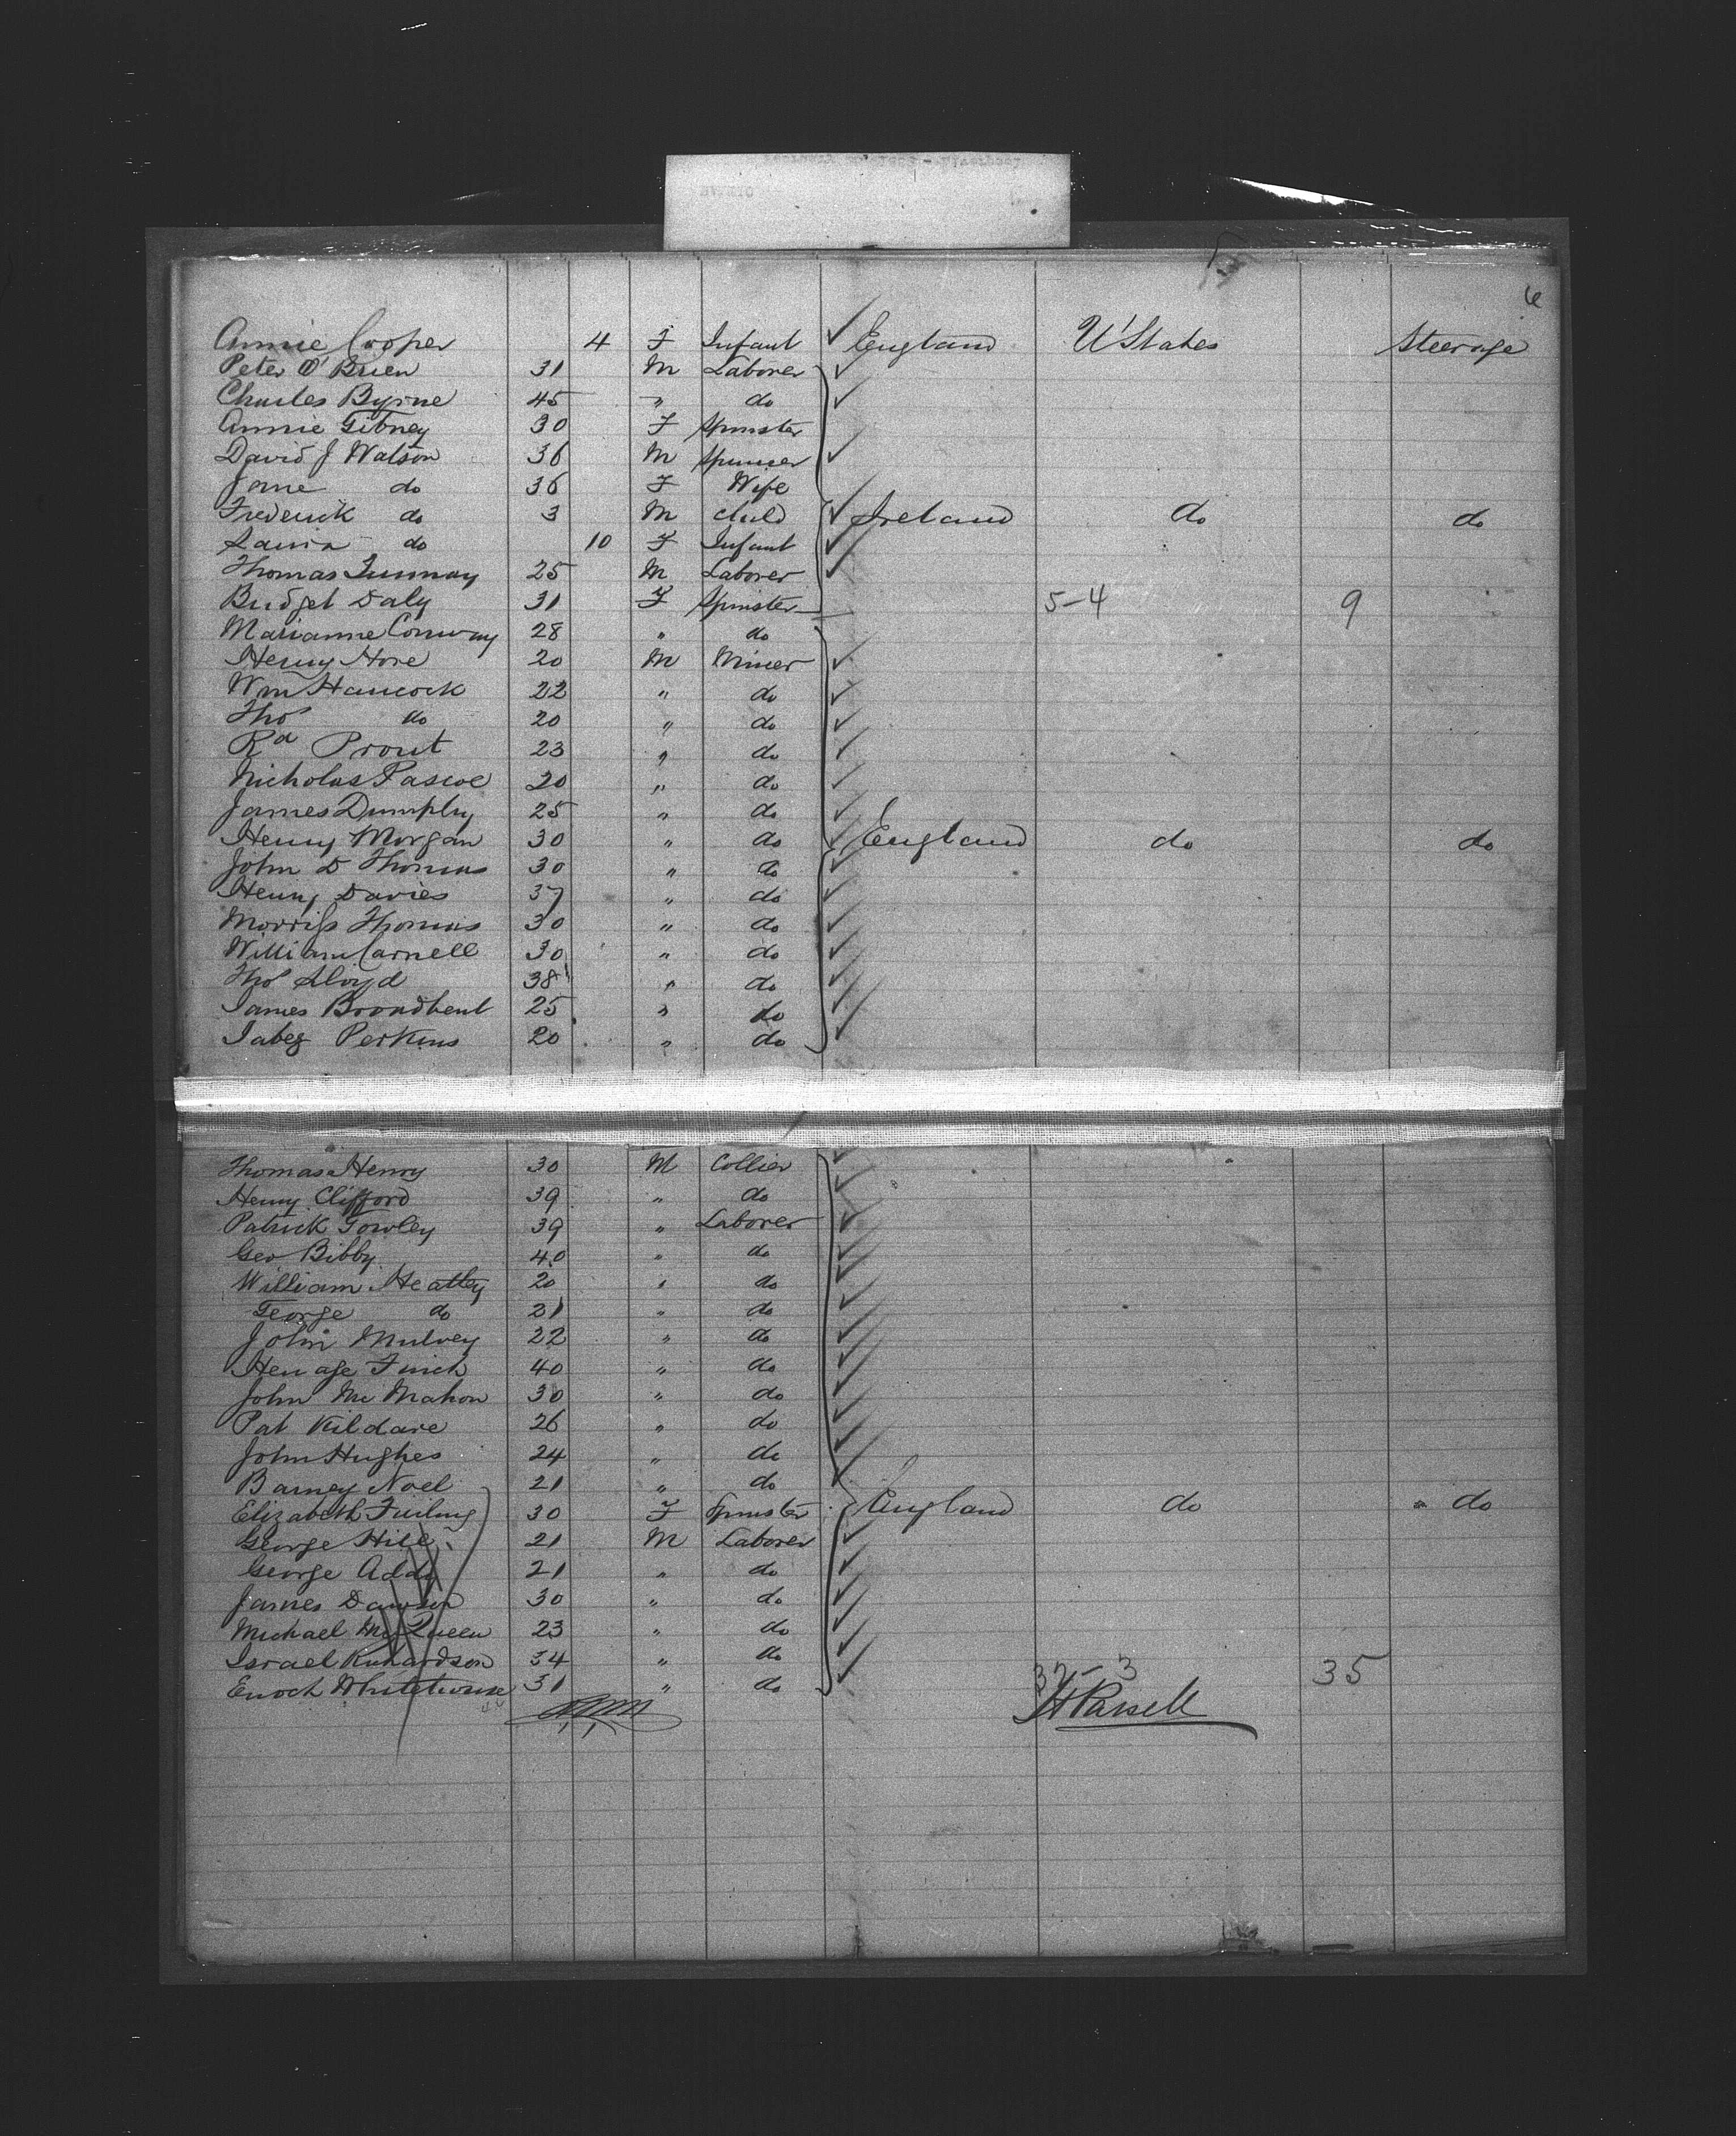 6
Annie Cooper 4 F Infant England U'States Steerage
Peter O'Brien 31 M Laborer
Charles Byrne 45 " do
Annie Gibney 30 F Spinster
David J Watson 36 M
Jane do 36 F Wife
Frederick do 3 M child Ireland do do
do 10 F Infant
Thomas 25 M Laborer
Bridget Daly 31 F Spinster 5-4 9
Marianne Conway 28 " do
Henry Hore 20 M Miner
Wm Hancock 22 " do
Thos do 20 " do
Rd Prout 23 " do
Nicholas Pascoe 20 " do
James Dumphy 25 " do
Henry Morgan 30 " do England do do
John D Thomas 30 " do
Henry Davies 37 " do
Morriss Thomas 30 " do
William Carnell 30 " do
Thos Lloyd 38 " do
James Broadbent 25 " do
Jabez Perkins 20 " do
Thomas Henry 30 M Collier
Henry Clifford 39 " do
Patrick Towley 39 " Laborer
Geo Bibby 40 " do
William Heatley 20 " do
George do 21 " do
John Mulvey 22 " do
Henage Finch 40 " do
John McMahon 30 " do
Pat Kildare 26 " do
John Hughes 24 " do
Barney Noel 21 " do
Elizabeth 30 F Spinster England do do
George Hill 21 M Laborer
George Addy 21 " do
James Dawson 30 " do
Michael McQueen 23 " do
Israel Richardson 34 " do
Enoch Whitehouse 31 " do 32-3 35
H Parsell